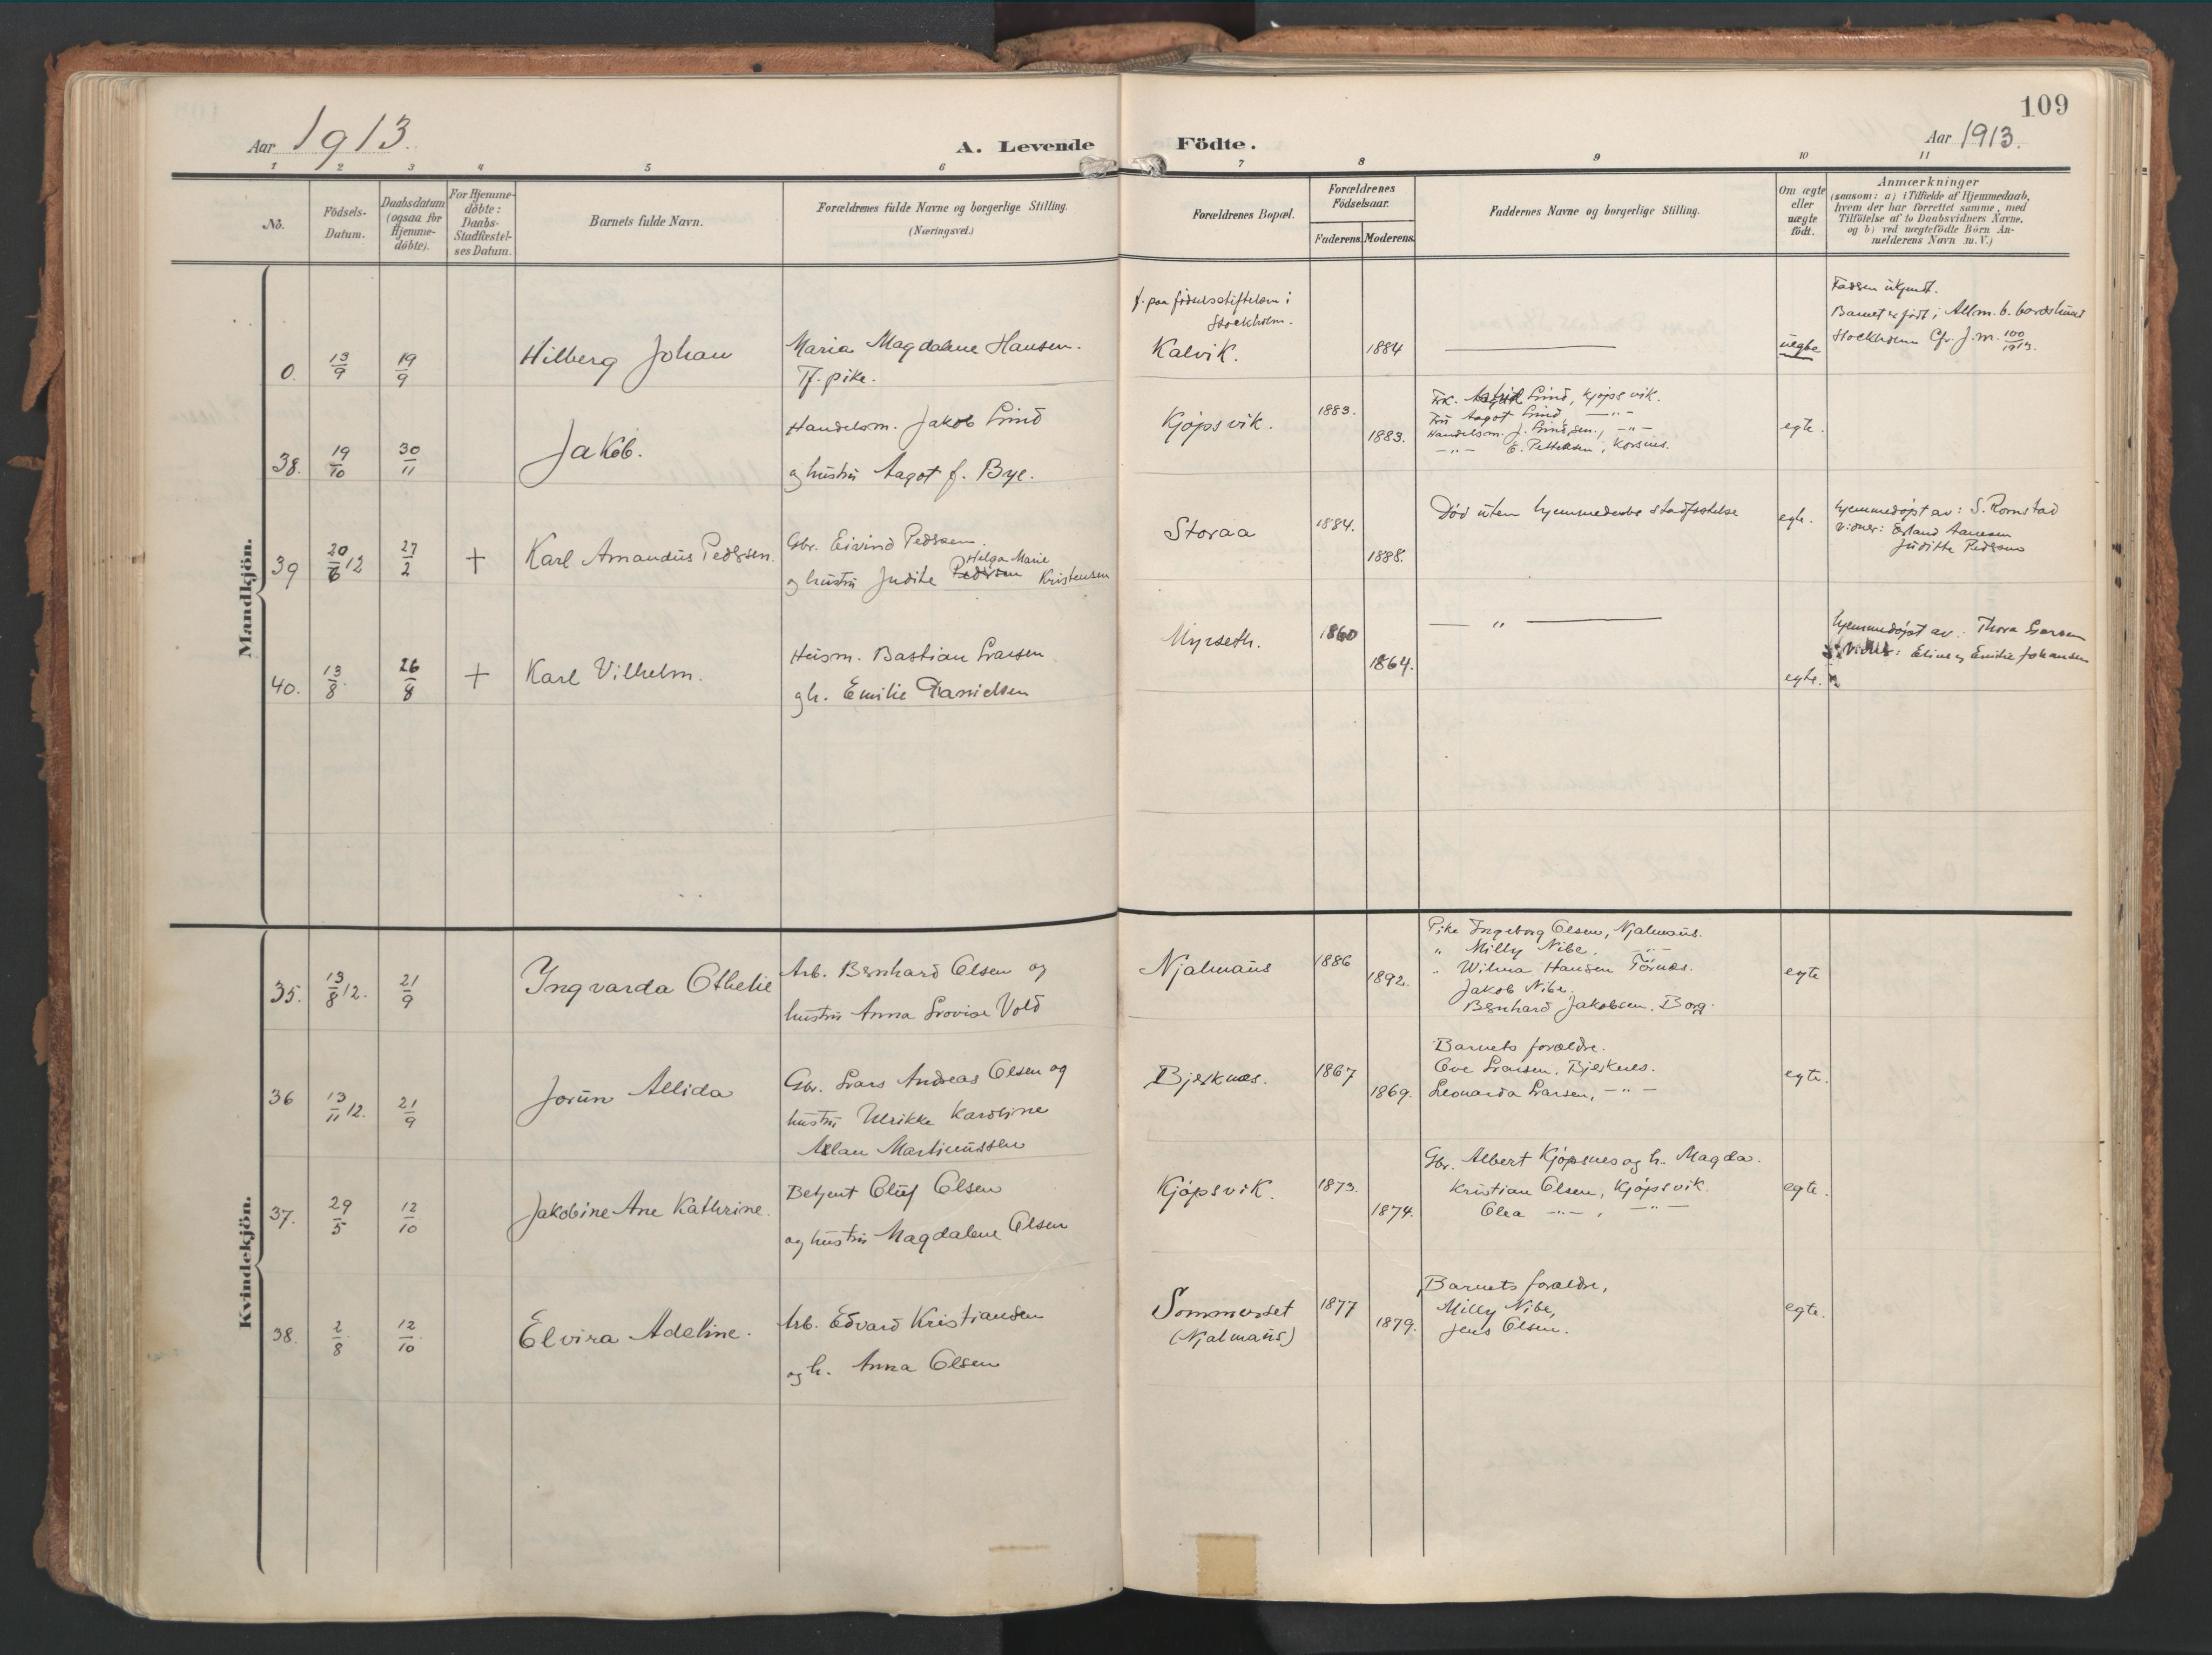 109
Aar 1913.
A. Levende Födte.
Aar 1913.
1 2 3 4 5 6 7 8 9 10 11
No.
Födsels-
Datum.
Daabsdatum
(ogsaa for
Hjemme-
döbte).
For Hjemme-
döbte:
Daabs-
Stadfæstel-
ses Datum.
Barnets fulde Navn.
Forældrenes fulde Navne og borgerlige Stilling.
(Næringsvei.)
Forældrenes Bopæl.
Forældrenes
Födselsaar.
Faderens. Moderens.
Faddernes Navne og borgerlige Stilling.
Om ægte
eller
uægte
födt.
Anmærkninger
(saasom: a) i Tilfælde af Hjemmedaab,
hvem der har forrettet samme, med
Tilföielse af to Daabsvidners Navne,
og b) ved uægtefödte Börn An-
melderens Navn m. V.)
Mandkjön.
0. 13/9 19/9 Hilberg Johan
Maria Magdalene Hansen.
Tj. pike.
f. paa fødselsstiftelsen i
Stockholm.
Kalvik. 1884 uegte
Faderen ukjendt.
Barnet er født i Allm. b. bördshuset
Stockholm Cfr. J. m. 100/1913.
38. 19/10 30/11 Jakob.
Handelsm. Jakob Lind
og hustru Aagot f. Bye.
Kjøpsvik. 1883. 1883.
Frk. Astrid Lind, Kjøpsvik.
Fru Aagot Lind, —"—
Handelsm. J. Lind, sen., —"—
—"— E. Pettersen, Korsnes.
egte.
39 20/6 12 27/2 + Karl Amandus Pedersen.
Gbr. Eivind Pedersen
Helga Marie
og hustru Judite Pedersen Kristensen
Storaa 1884. 1888.
Död uten hjemmedaabs stadfæstelse
egte.
hjemmedøpt av: S. Romstad
vidner: Erland Aanesen
Judithe Pedersen
40. 13/8 26/8 + Karl Vilhelm.
Husm. Bastian Larsen
og h. Emilie Danielsen
Myrseth. 1860 1864.
— " —
egte.
hjemmedøpt av: Thora Larsen
Vidner: Eline og Emilie Johansen
Kvindekjön.
35. 13/8 12. 21/9 Ingvarda Othelie
Arb. Bernhard Olsen og
hustru Anna Lovise Vold
Njalmaus 1886 1892.
Pike Ingeborg Olsen, Njalmaus.
" Milly Nibe. —"—
" Wilma Hansen Törnes.
Jakob Nibe.
Bernhard Jakobsen. Borg.
egte
36 13/11 12. 21/9 Jorun Allida
Gbr. Lars Andreas Olsen og
hustru Ulrikke Karoline
Allan Martinussen
Bjerknes. 1867 1869.
Barnets forældre.
Ove Larsen, Bjerknes.
Leonarda Larsen, —"—
egte.
37. 29/5 12/10 Jakobine Ane Kathrine.
Betjent Oluf Olsen
og hustru Magdalene Olsen
Kjøpsvik. 1873. 1874.
Gbr. Albert Kjøpsnes og h. Magda.
Kristian Olsen, Kjøpsvik.
Olea —"—, —"—
egte.
38. 2/8 12/10 Elvira Adeline.
Arb. Edvard Kristiansen
og h. Anna Olsen
Sommerset
(Njalmaus)
1877 1879.
Barnets forældre,
Milly Nibe,
Jens Olsen.
egte.